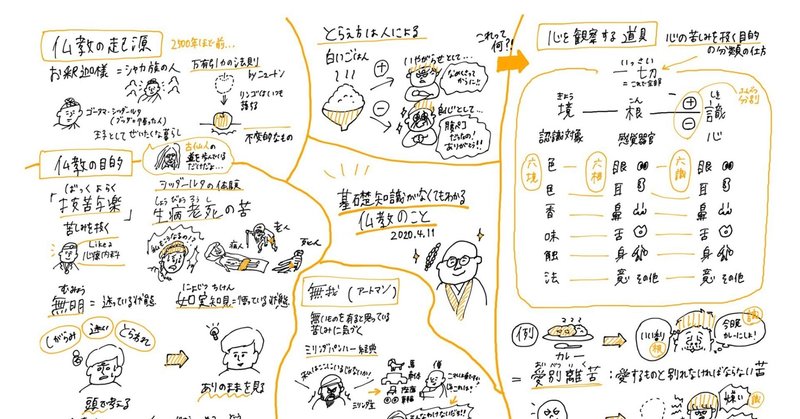 仏教の起源
2500年ほど前...
お釈迦様=シャカ族の人
ゴータマ・シッダールタ
王子としてぜいたくな暮らし
万有引力の法則
byニュートン
リンゴはいつも
落ちる
不変的なもの
古仏人の
道を歩んでいる
だけだよ...
仏教の目的
ばっくよらく
「抜苦与楽」
苦しみを抜く
Like a
心療内科
シッダールタの体験
しょうびょうろうし
生病老死の苦
病人
老人
死にん
むみょう
無明=迷っている状態
にょじつちけん
如実知見=悟っている状態
しがらみ
迷い
とらわれ
頭で考える
ありのままを見る
とらえ方は人による
白いごはん
+
−
いやがらせとして...
なめとって
からに!!
良心として...
腹ペコ
だったの!
ありがとう!!
これって
何?!
基礎知識がなくてもわかる
仏教のこと
2020.4.11
無我(アートマン)
無いものを有ると思っている
苦しみに気づく
ミリンダパンハー経典
私はここにいるじゃないか!
ミリンダ王
僧
心を観察する道具
心の苦しみを抜く目的
の分類の仕方
いっさい
一切
=これで全部
ふんべつ
分別
きょう
境
こん
根
しき
識
+
−
認識対象
感覚器官
心
六境
六根
六識
色 眼 眼
声 耳 耳
香 鼻 鼻
味 舌 舌
触 身 身
法 意 その他 意 その他
例
カレー
いい香り
根
識
今晩
カレーにしよ!
あいべつりく
=愛別離苦:愛するものと別れなければならない苦
嫌い
識